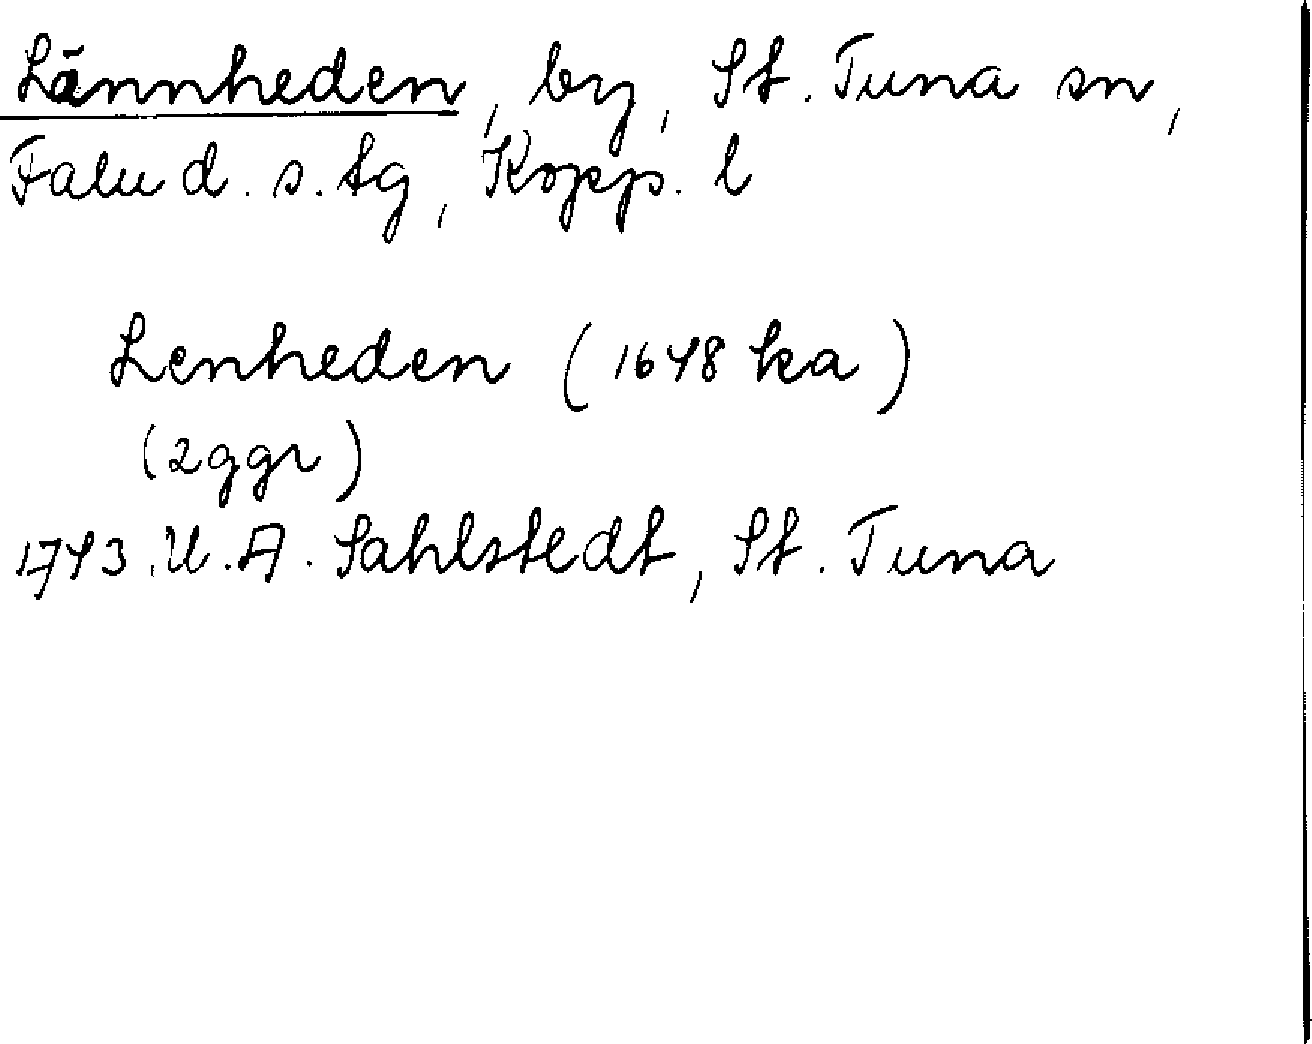 Lännheden, by, St. Tuna sn,
Falu d. s. tg, Kopp. l
Lenheden (1648 ka)
(2ggr)
1743. U. A. Sahlstedt, St. Tuna